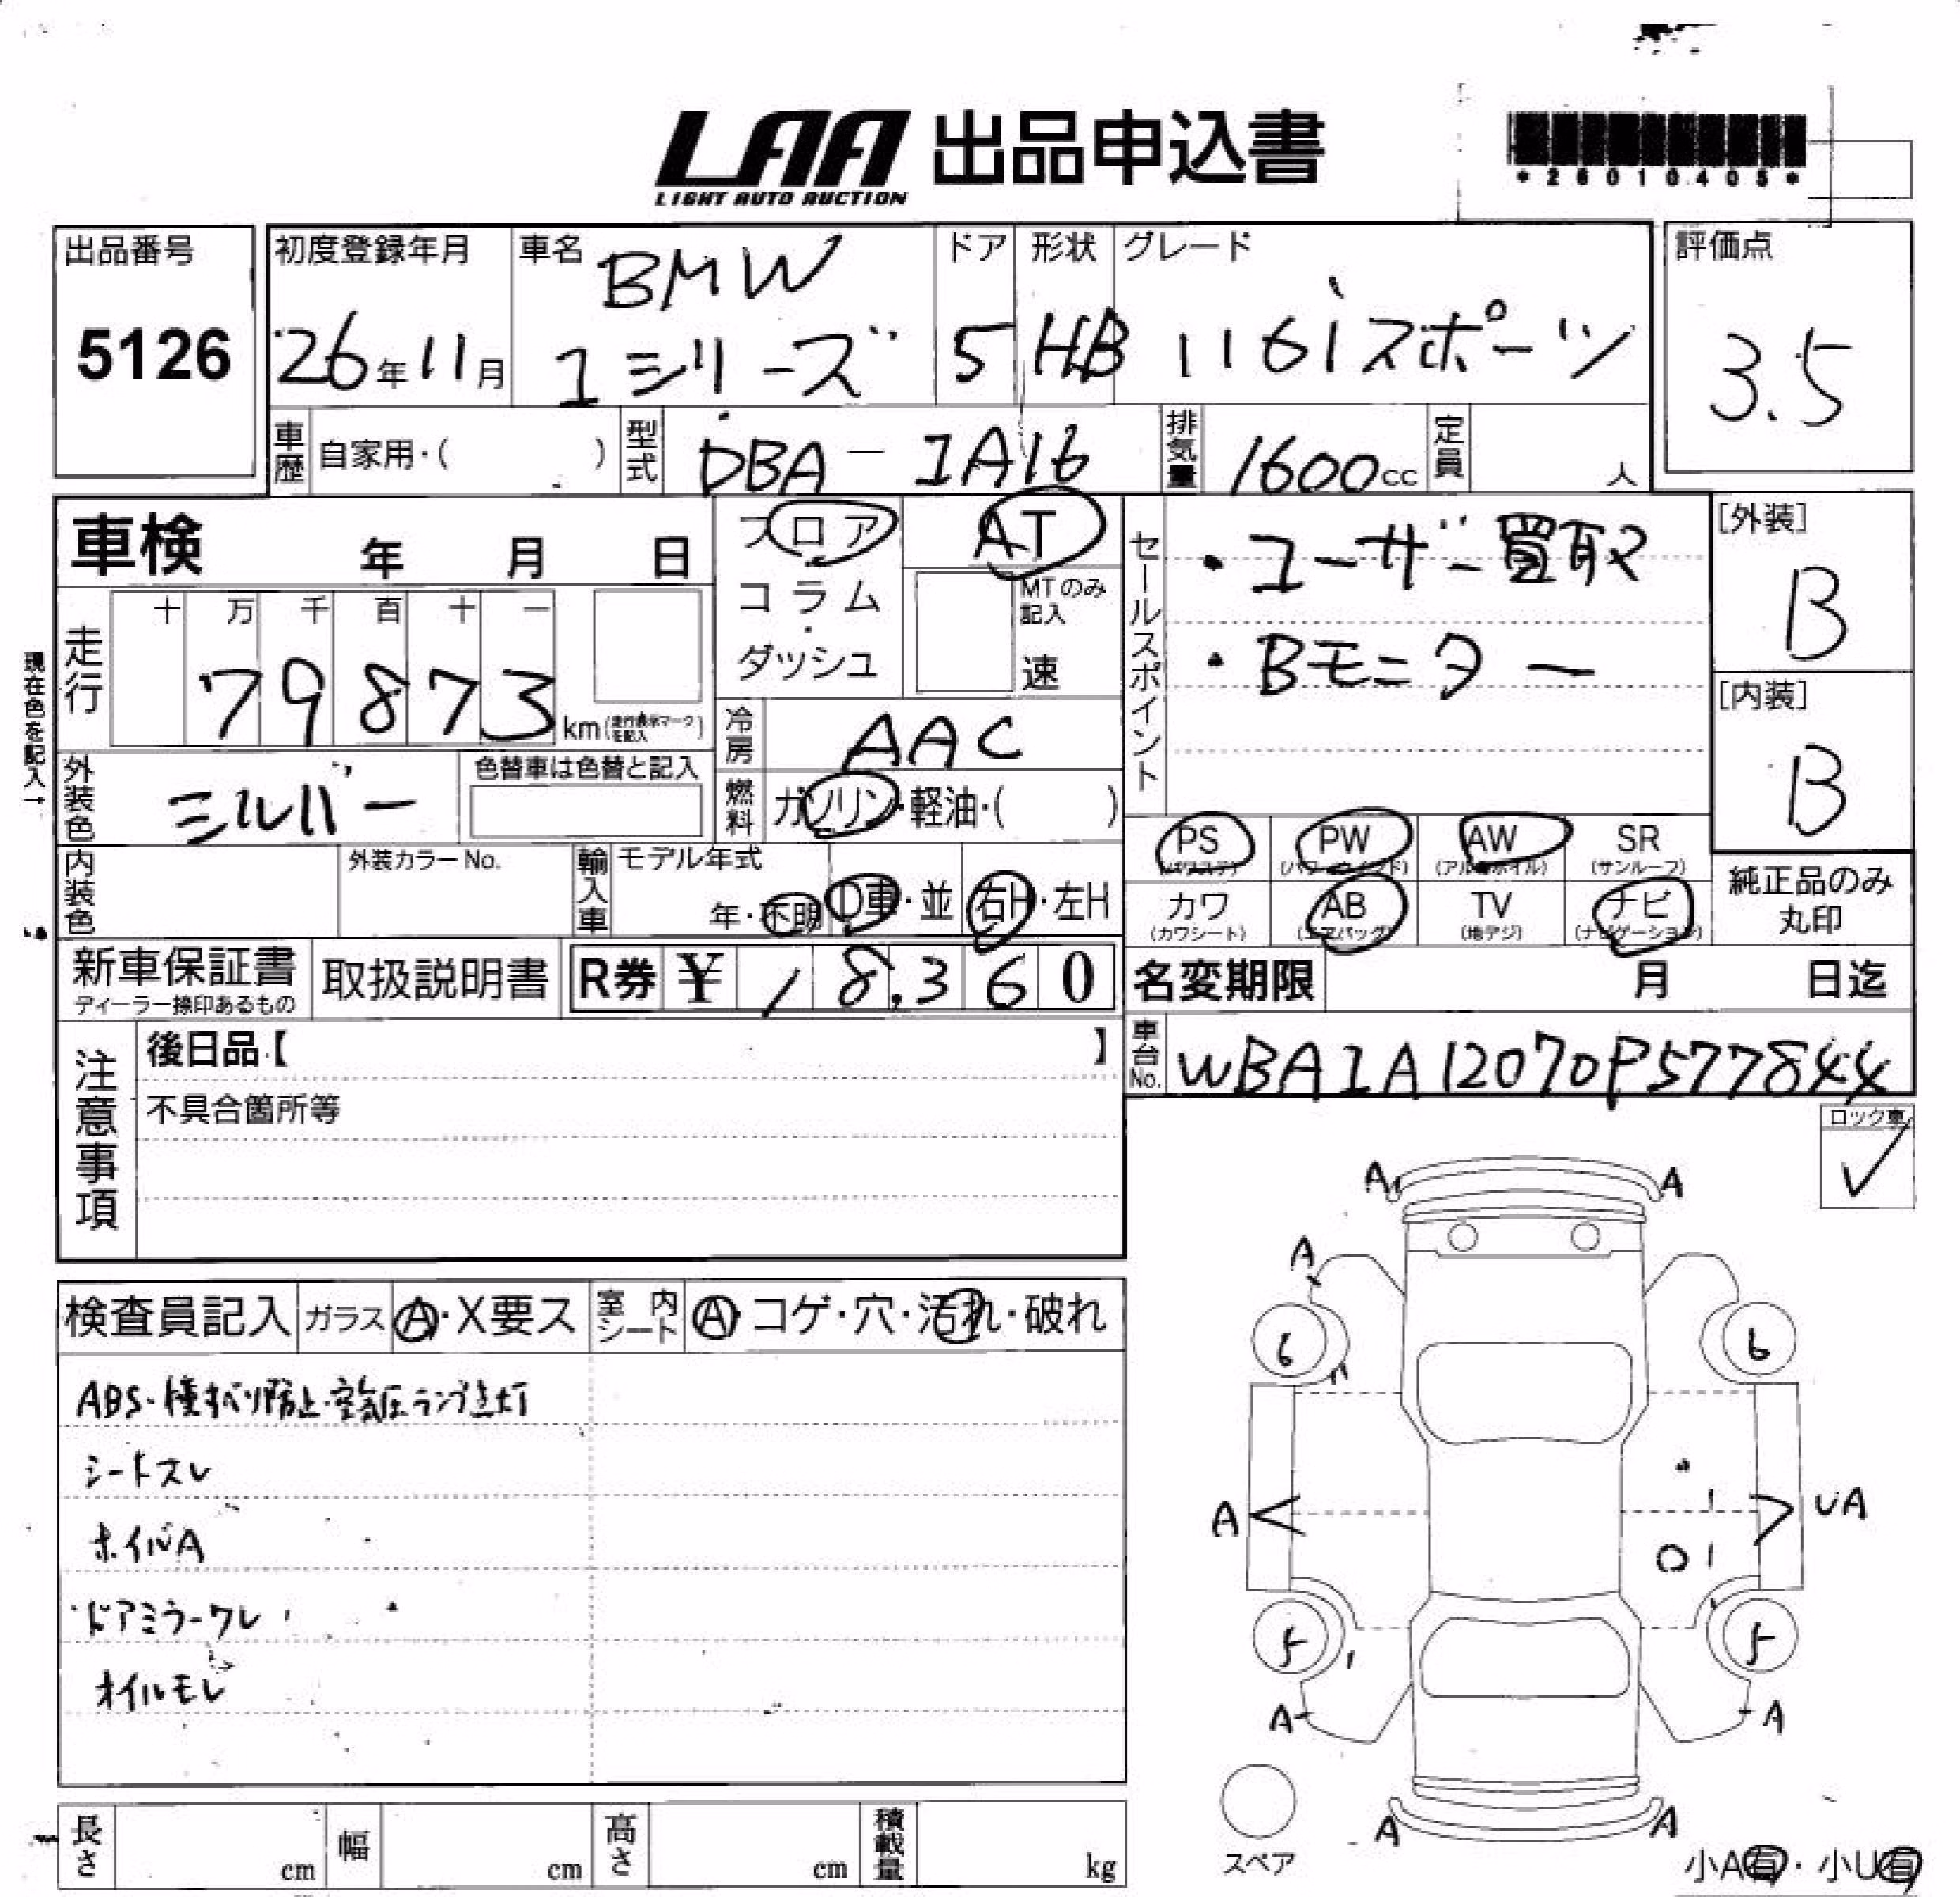 LAA 出品申込書
LIGHT AUTO AUCTION
*26010405*
出品番号
5126
初度登録年月
26年11月
車名
BMW
1シリーズ
ドア
5
形状
HB
グレード
116iスポーツ
評価点
3.5
車歴 自家用・( )
型式 DBA-1A16
排気量 1600cc
定員 人
車検 年 月 日
フロア
コラム
・
ダッシュ
AT
MTのみ記入
速
セールスポイント
・ユーザー買取
・Bモニター
[外装]
B
[内装]
B
現在色を記入→
走行
十 万 千 百 十 一
7 9 8 7 3 km(走行表示マークを記入)
冷房 AAC
外装色 シルバー
色替車は色替と記入
燃料 ガソリン・軽油・( )
PS (パワステ)
PW (パワーウインド)
AW (アルミホイル)
SR (サンルーフ)
カワ (カワシート)
AB (エアバッグ)
TV (地デジ)
ナビ (ナビゲーション)
純正品のみ丸印
内装色
外装カラーNo.
輸入車
モデル年式
年・不明
D車・並
右H・左H
新車保証書
ディーラー捺印あるもの
取扱説明書
R券 ¥ 18,360
名変期限 月 日迄
車台No. WBA1A12070P577844
注意事項
後日品【 】
不具合箇所等
ロック車
✓
検査員記入
ガラス A・X要ス
室内シート A・コゲ・穴・汚れ・破れ
ABS・横すべり防止・空気圧ランプ点灯
シートスレ
ホイルA
ドアミラーワレ
オイルモレ
A A
A
6 6
A UA
5 5
A A
A A
スペア
小A有・小U有
長さ cm
幅 cm
高さ cm
積載量 kg